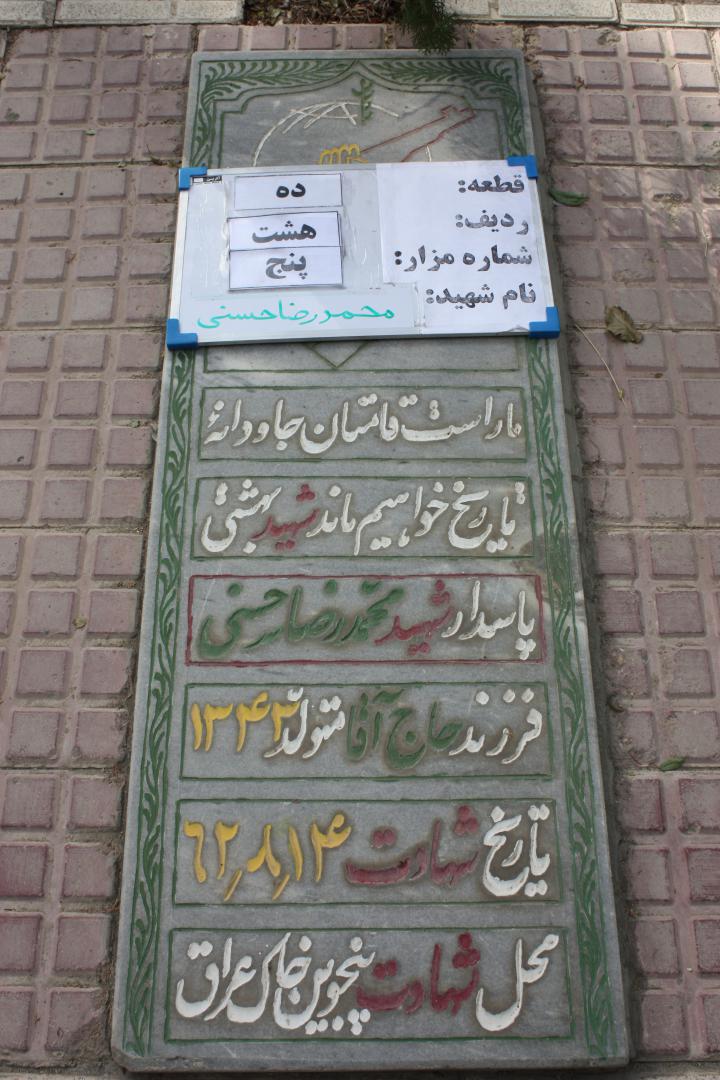 قطعه: ده
ردیف: هشت
شماره مزار: پنج
نام شهید: محمدرضا حسنی
ما راست قامتان جاودانهٔ
تاریخ خواهیم ماند شهید بهشتی
پاسدار شهید محمدرضا حسنی
فرزند حاج آقا متولد ۱۳۴۳
تاریخ شهادت ۶۲٫۸٫۱۴
محل شهادت پنجوین خاک عراق